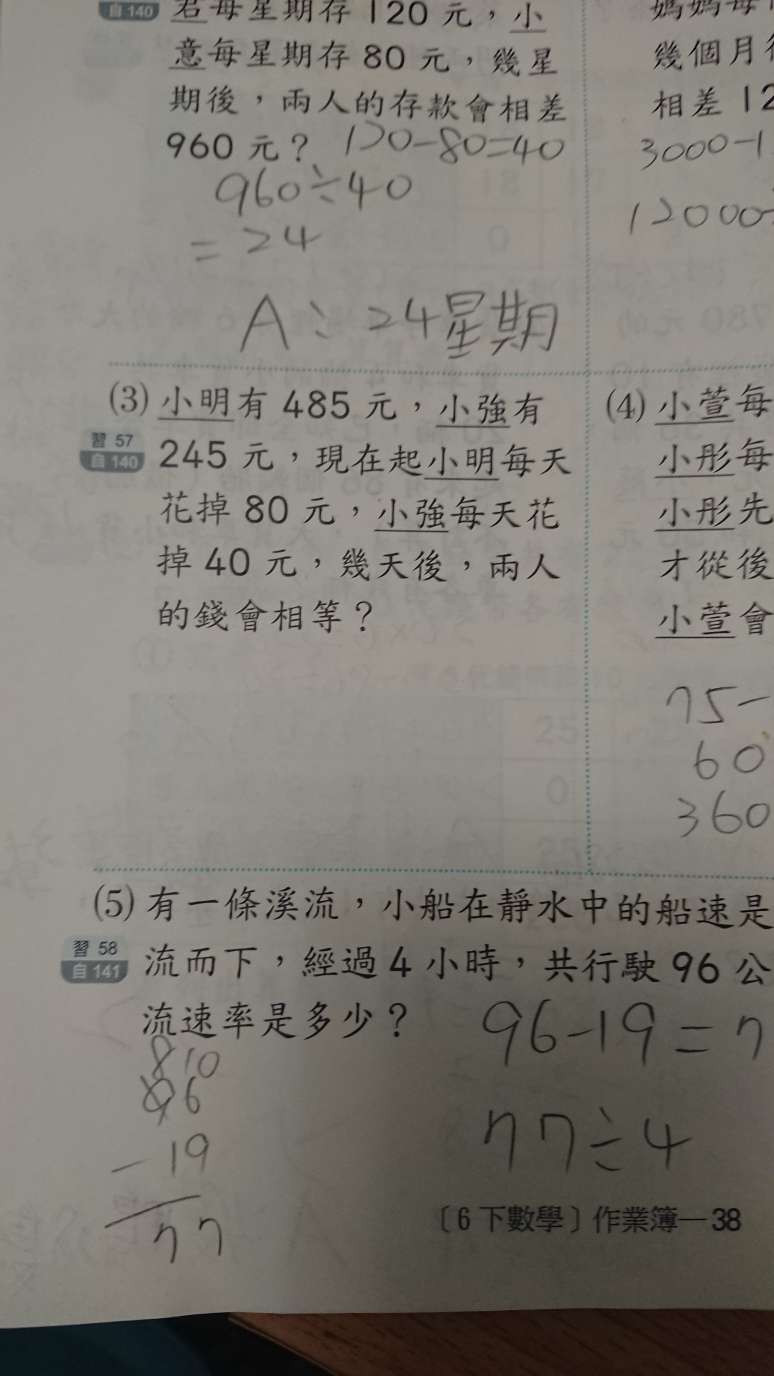 自 140
君每星期存 120 元，小
意每星期存 80 元，幾星
期後，兩人的存款會相差
960 元？ 120-80=40
960÷40
=24
A：24星期
媽媽每
幾個月
相差 12
3000-1
12000
(3) 小明有 485 元，小強有
習 57
自 140
245 元，現在起小明每天
花掉 80 元，小強每天花
掉 40 元，幾天後，兩人
的錢會相等？
(4) 小萱每
小彤每
小彤先
才從後
小萱會
75-
60
360
(5) 有一條溪流，小船在靜水中的船速是
習 58
自 141
流而下，經過 4 小時，共行駛 96 公
流速率是多少？ 96-19=7
8 10
96
-19
77
77÷4
〔6 下數學〕作業簿—38